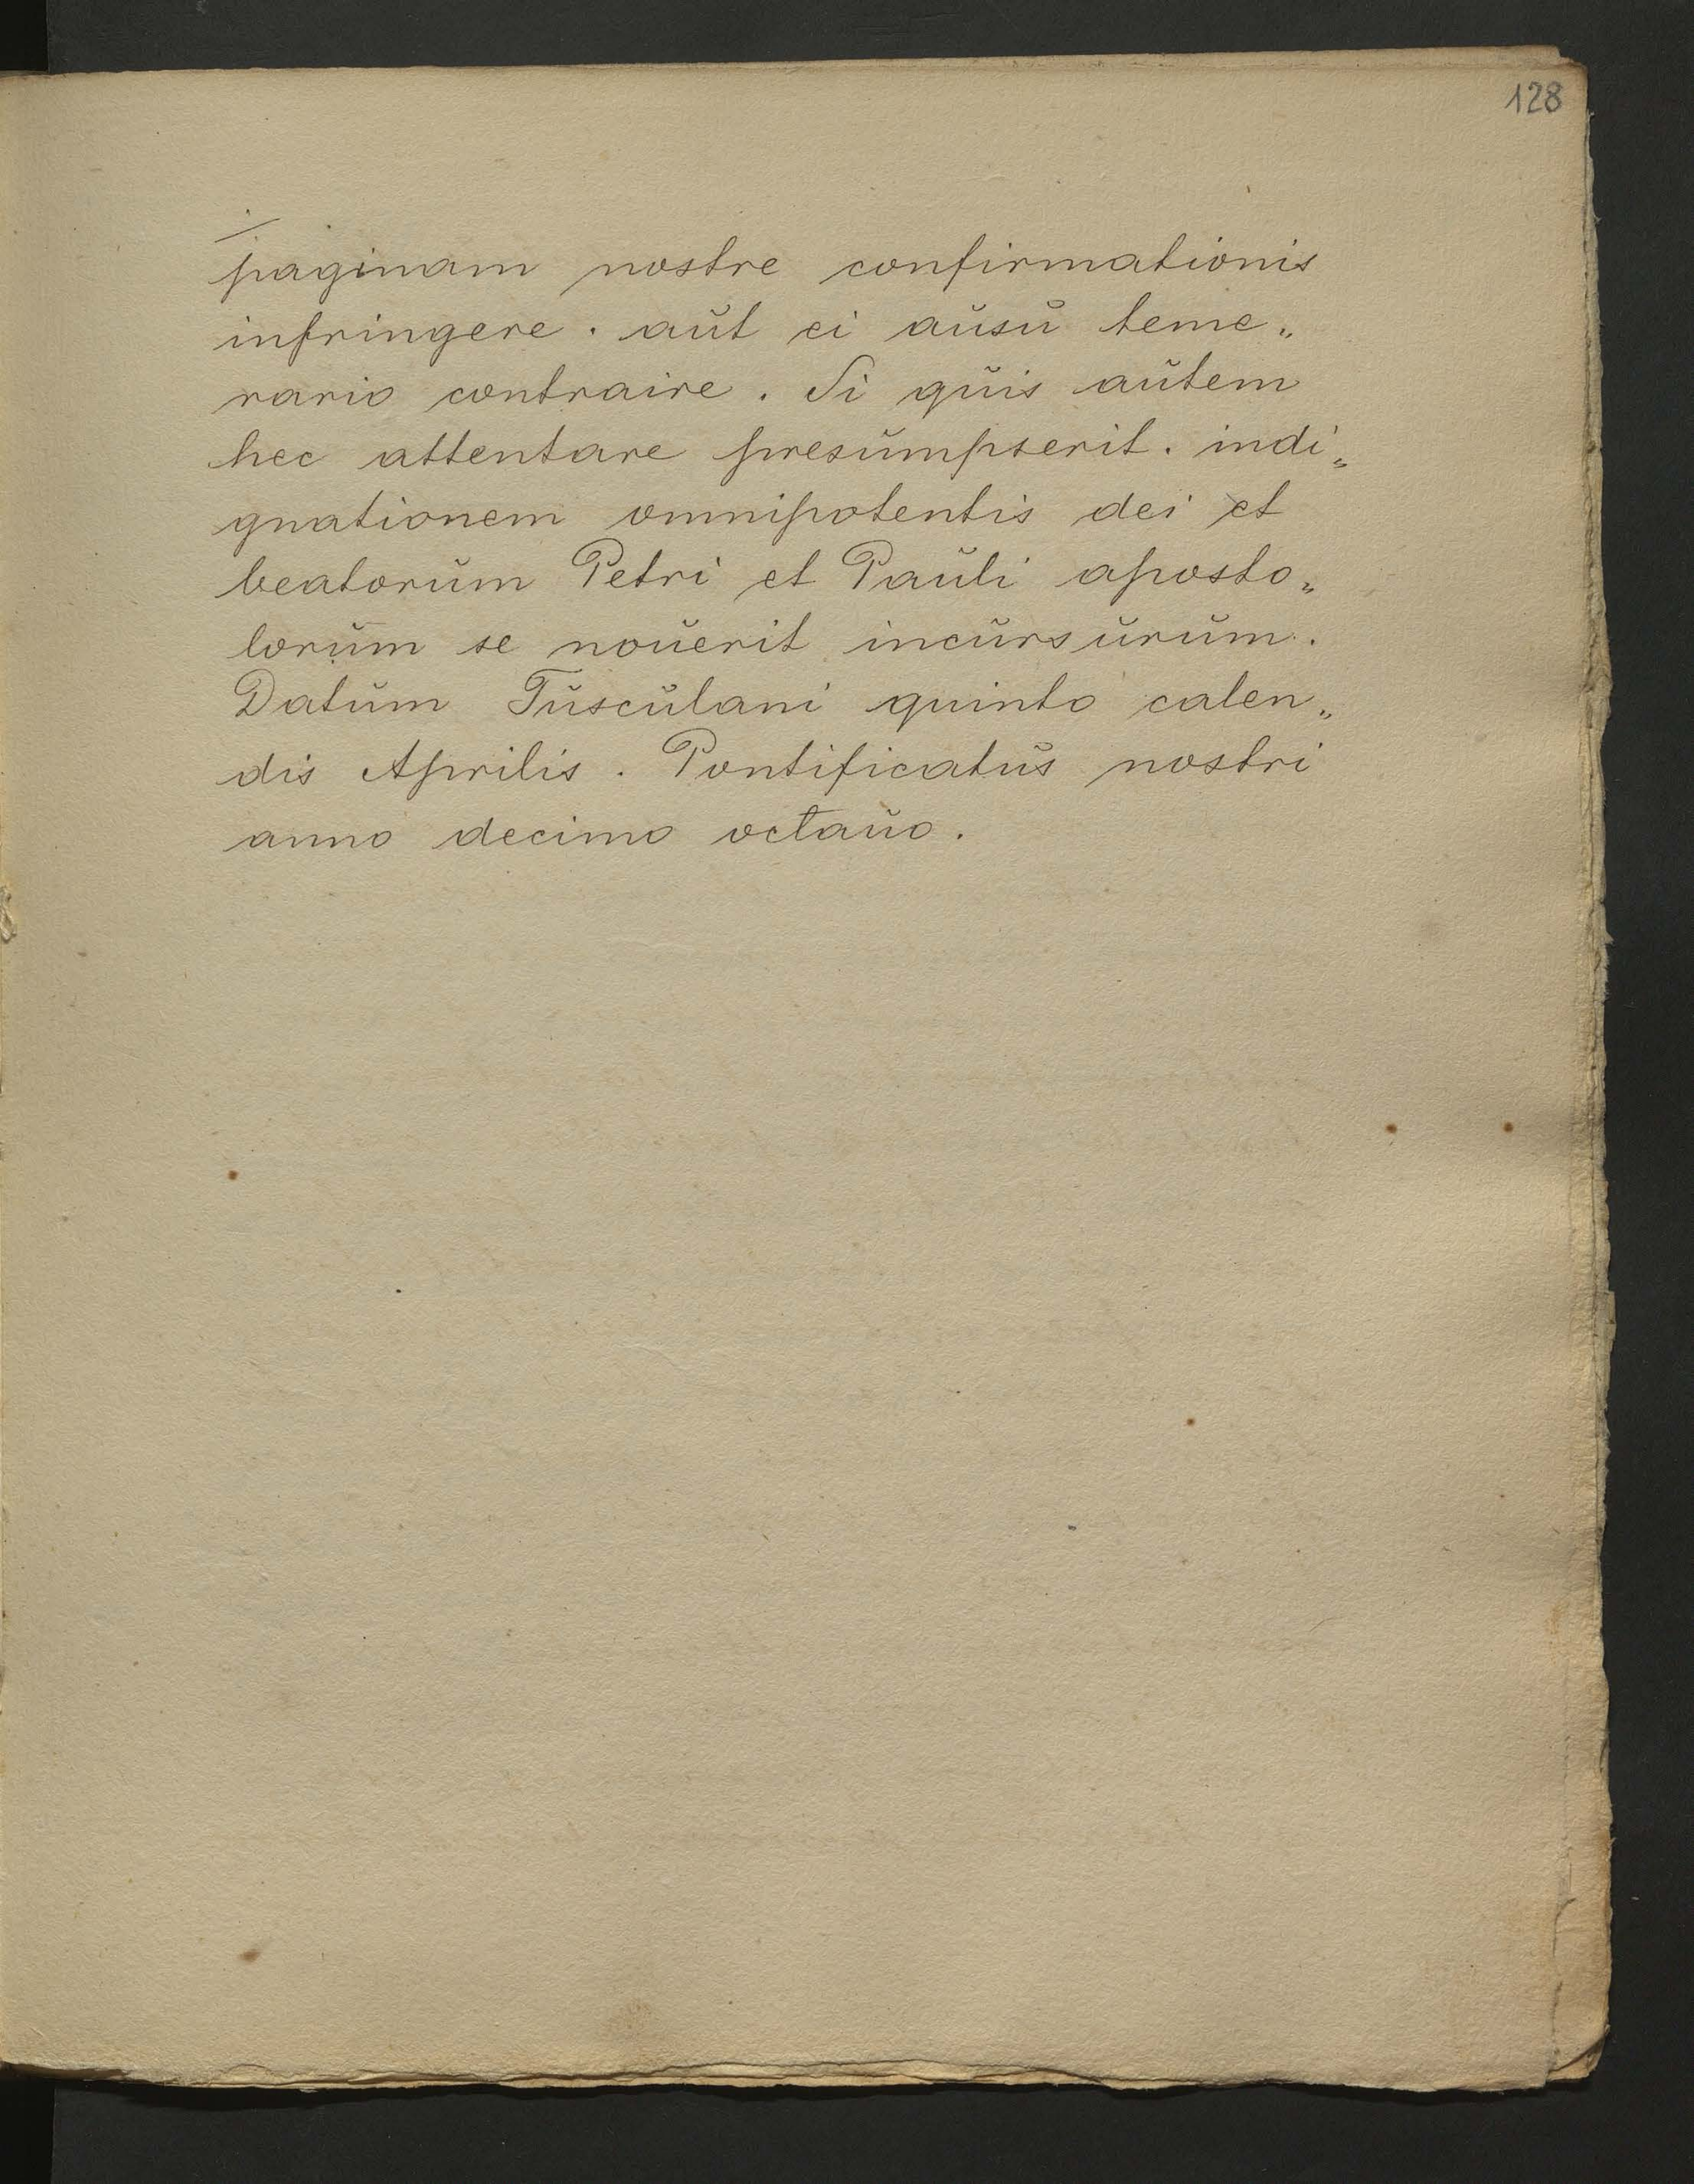 128
paginam nostre confirmationis
infringere. aŭt ei aŭsŭ teme„
rario contraire. Si qŭis aŭtem
hec attentare presŭmpserit. indi„
gnationem omnipotentis dei et
beatorŭm Petri et Paŭli aposto„
lorŭm se noŭerit incŭrsŭrŭm.
Datŭm Tŭscŭlani quinto calen„
dis Aprilis. Pontificatŭs nostri
anno decimo octaŭo.